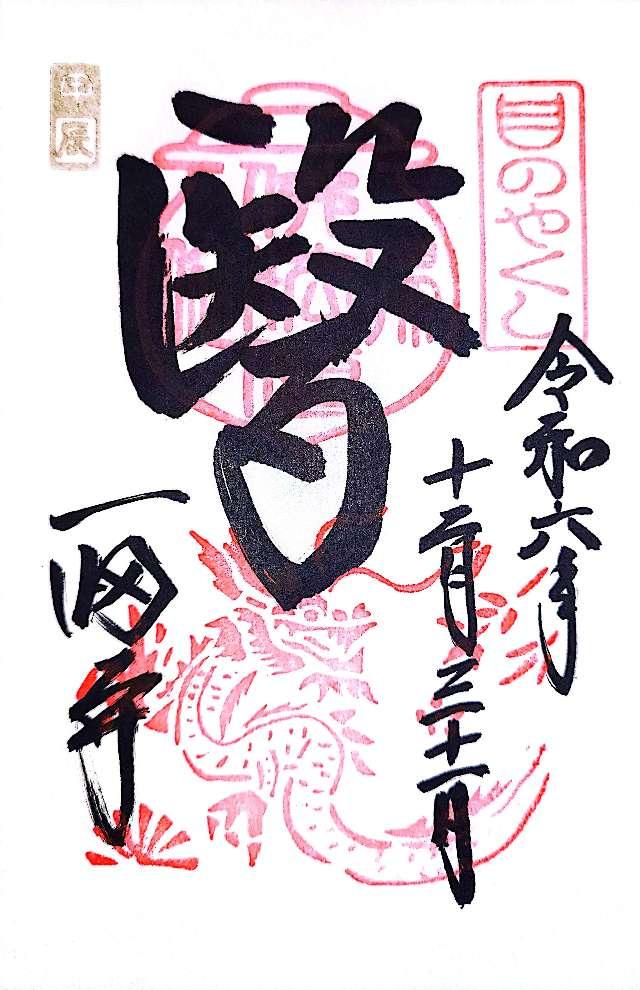 目のやくし
令和六年
十二月三十一日
醫
甲辰
一畑寺